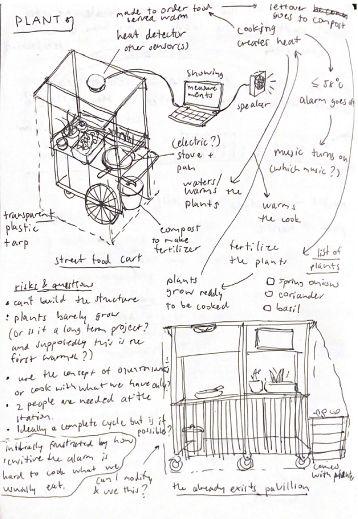 PLANT
made to order food
served warm
leftover
goes to compost
heat detector
other sensor(s)
cooking
creates heat
showing
measure
ments
speaker
≤ 58°C
alarm goes
(electric?)
stove +
pan
music turns on
(which music?)
waters/
warms the
plants
warms
the cook
transparent
plastic
tarp
compost
to make
fertilizer
fertilize
the plants
street food cart
list of
plants
spring onion
coriander
basil
plants
grow ready
to be cooked
risks & questions
• can't build the structure
• plants barely grow
(or is it a long term project?
and supposedly this is the
first warmth?)
• use the concept of
or cook with what we have only?
• 2 people are needed at the
station.
• Ideally a complete cycle but is it
possible?
initially frustrated by how
sensitive the alarm is
hard to cook what we
usually eat.
can I modify
& use this?
the already exists pavillion
comes
with